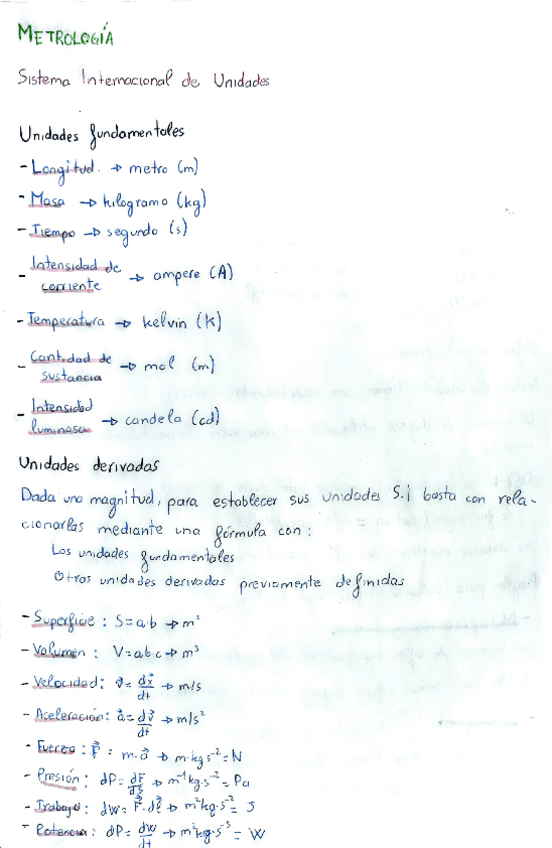 METROLOGÍA
Sistema Internacional de Unidades
Unidades fundamentales
- Longitud. → metro (m)
- Masa → kilogramo (kg)
- Tiempo → segundo (s)
- Intensidad de corriente → ampere (A)
- Temperatura → kelvin (K)
- Cantidad de sustancia → mol (m)
- Intensidad luminosa → candela (cd)
Unidades derivadas
Dada una magnitud, para establecer sus unidades S.I basta con rela-
cionarlas mediante una fórmula con:
Las unidades fundamentales
Otras unidades derivadas previamente definidas
- Superficie: S=a·b → m²
- Volumen: V=a·b·c → m³
- Velocidad: v⃗= dx⃗/dt → m/s
- Aceleración: a⃗=dv⃗/dt → m/s²
- Fuerza: F⃗ = m·a⃗ → m·kg·s⁻² = N
- Presión: dP= dF/dS → m⁻¹kg·s⁻² = Pa
- Trabajo: dW= F⃗·dl⃗ → m²kg·s⁻² = J
- Potencia: dP= dW/dt → m²kg·s⁻³ = W